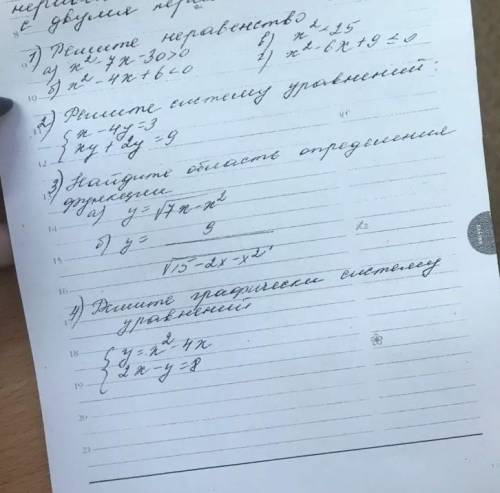 с двумя
1) Решите неравенство
а) x² - 7x - 30 > 0 в) x² < 25
б) x² - 4x + 6 < 0 г) x² - 6x + 9 ≤ 0
2) Решите систему уравнений:
{ x - 4y = 3
xy + 2y = 9
3) Найдите область определения
функции
а) y = √7x - x²
б) y = 9
√15 - 2x - x²
4) Решите графически систему
уравнений
{ y = x² - 4x
2x - y = 8